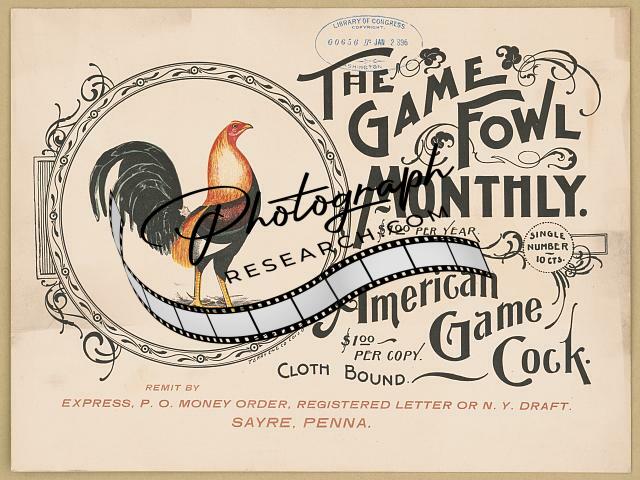 LIBRARY OF CONGRESS
COPYRIGHT.
JAN 2 1896
WASHINGTON
THE
GAME
FOWL
MONTHLY.
PER YEAR.
SINGLE
NUMBER
10 CTS.
Photograph
RESEARCH.COM
American
Game
Cock.
$1.00
PER COPY.
CLOTH BOUND.
REMIT BY
EXPRESS, P. O. MONEY ORDER, REGISTERED LETTER OR N. Y. DRAFT.
SAYRE, PENNA.